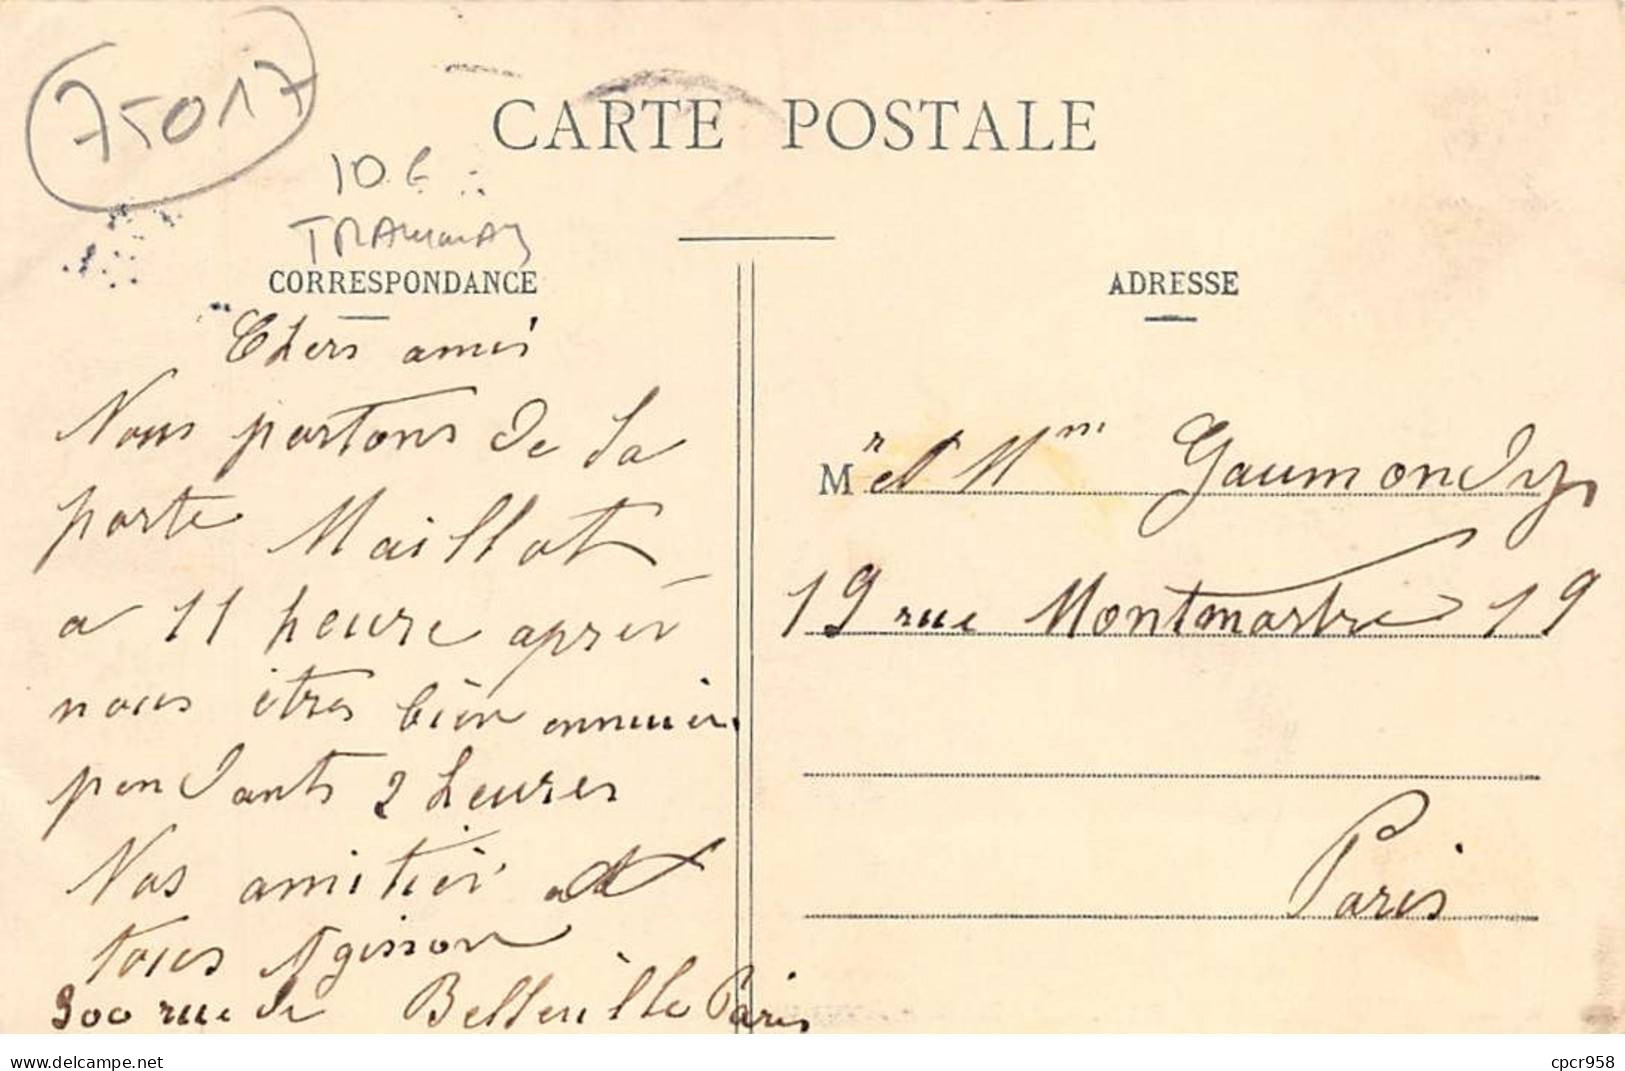 75017
10 €
TRAMWAY
CARTE POSTALE
CORRESPONDANCE
Chers amis
Nous partons de la
porte Maillot
a 11 heure après
nous êtres bien ennuier
pendants 2 heures
Nos amitiés a
tous
300 rue de Belleville Paris
ADRESSE
Mr et Mme Gaumondy
19 rue Montmartre 19
Paris
delcampe.net
cpcr958